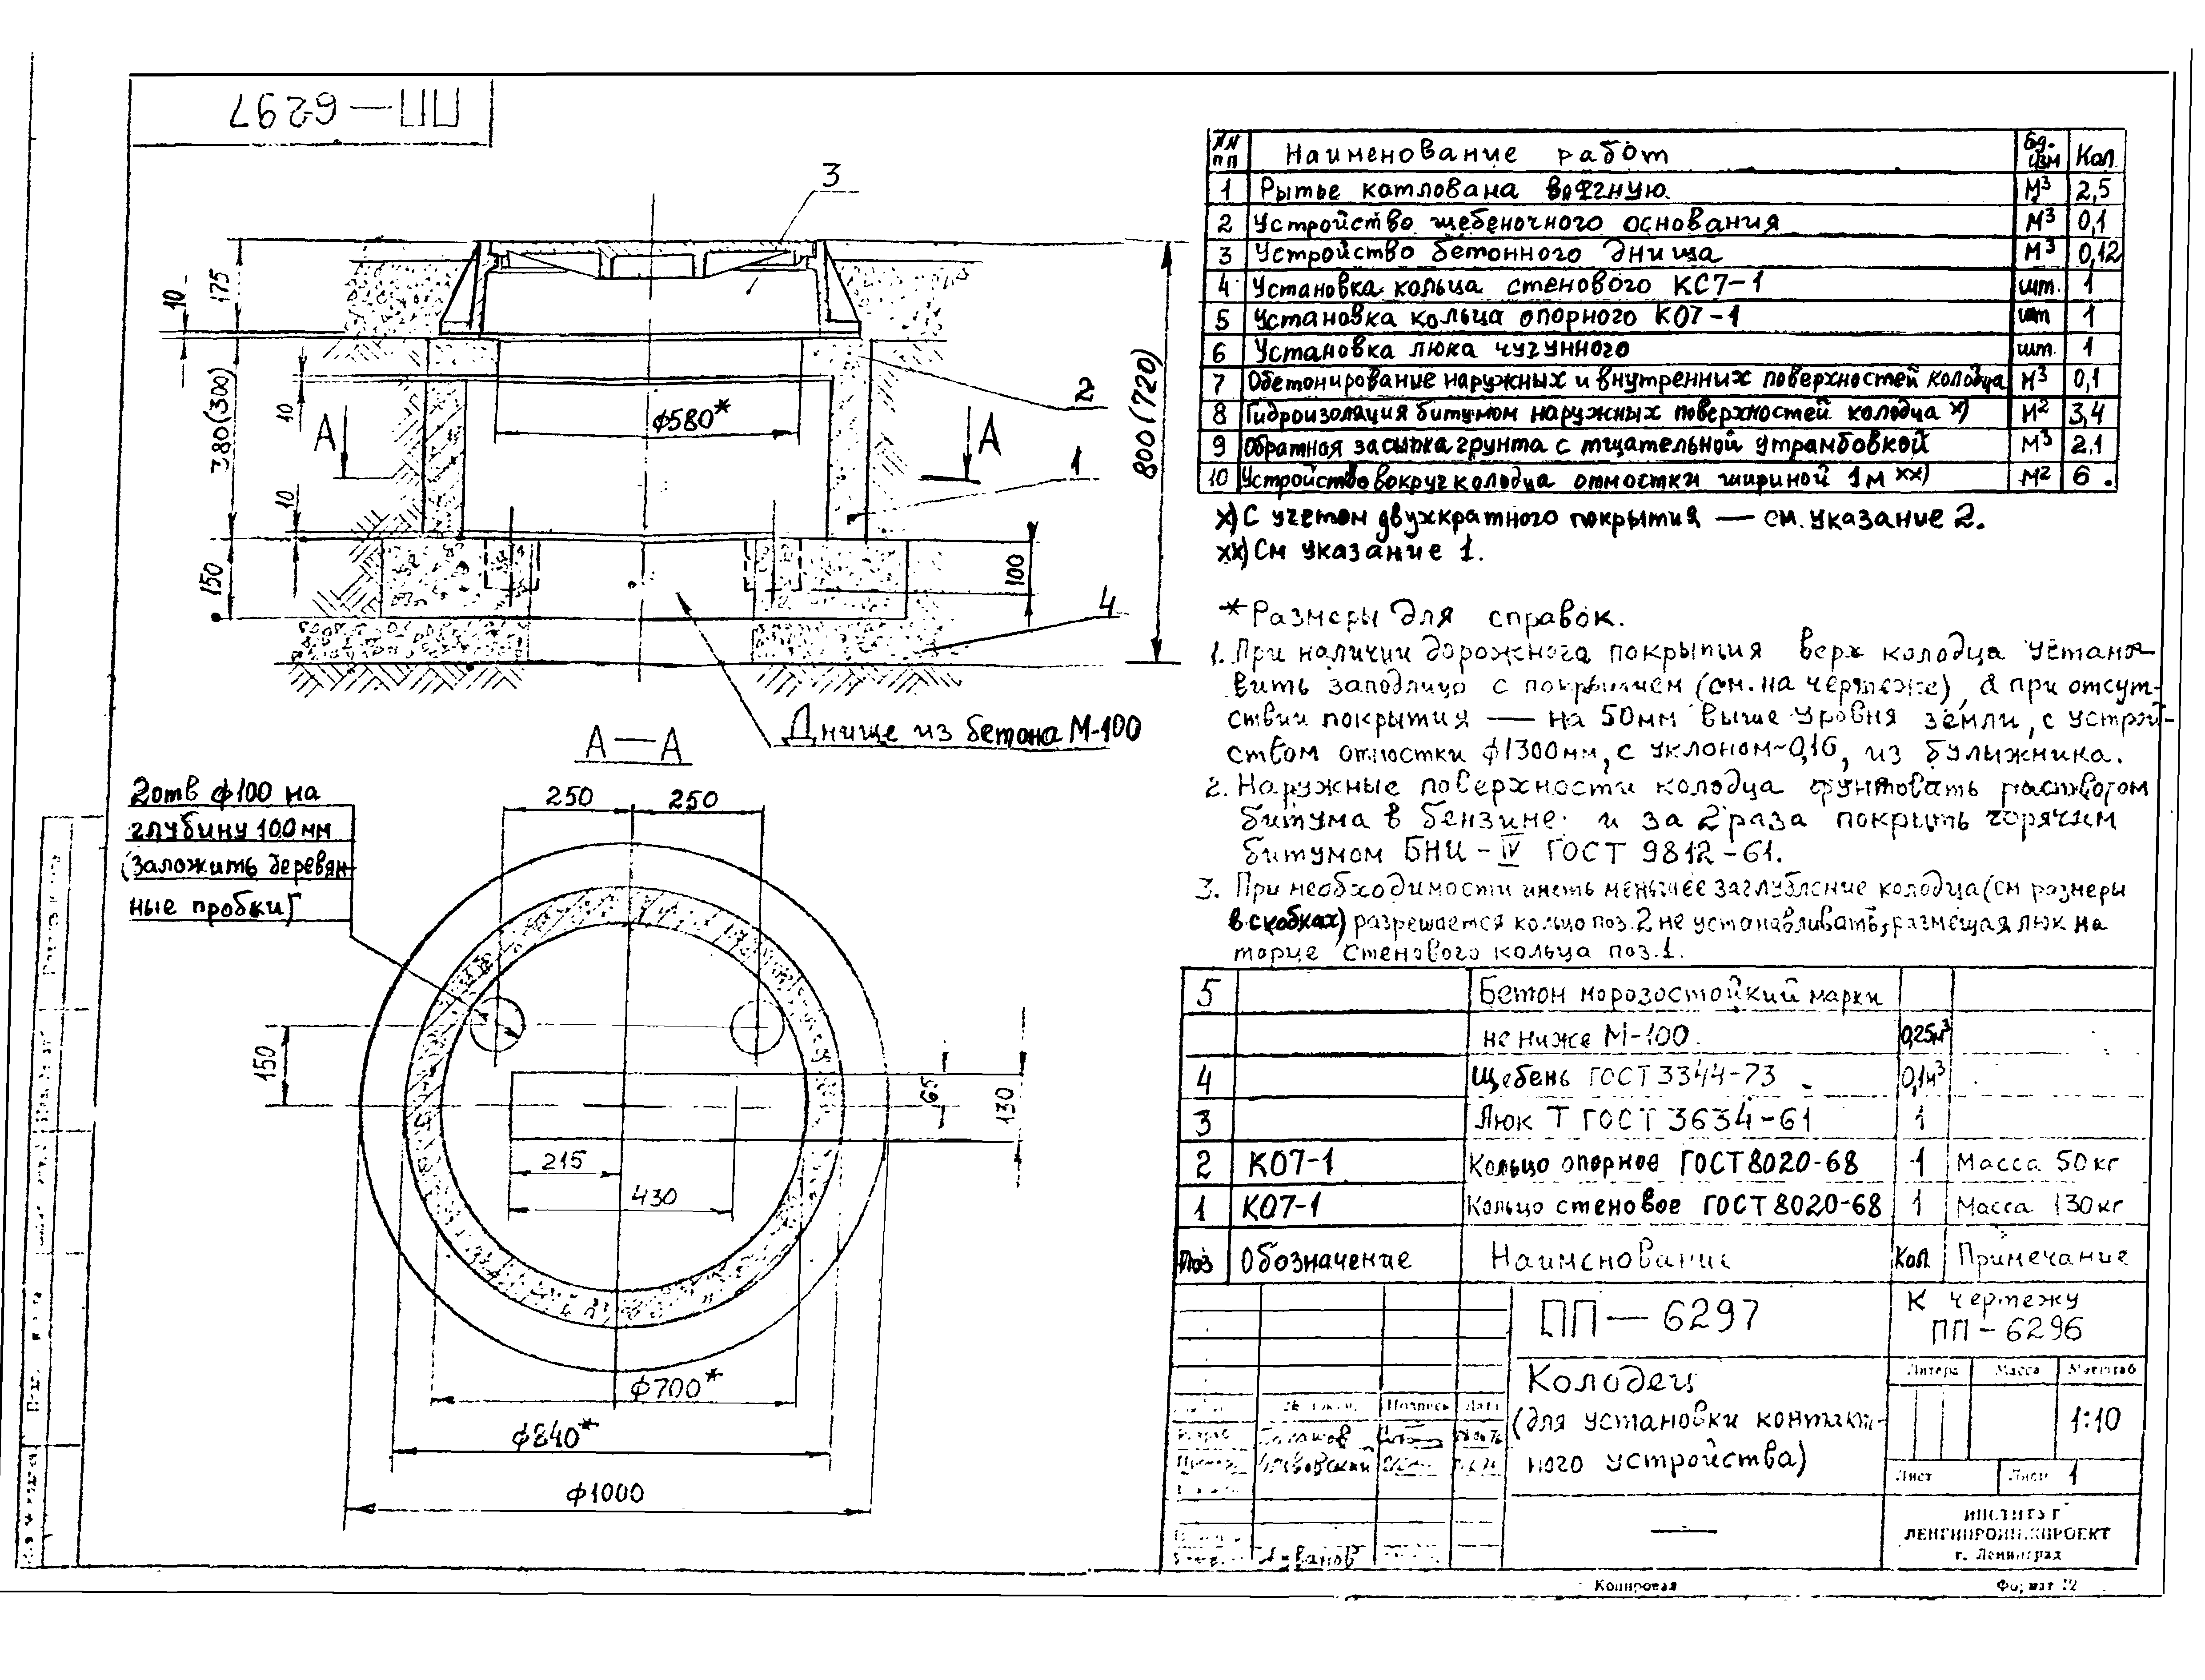 ПП—6297
3
10
175
10
380(300)
А
А
⌀580*
2
1
10
150
100
4
800(720)
Днище из бетона М-100
А—А
2отв ⌀100 на
глубину 100мм
(заложить деревян-
ные пробки)
250
250
150
65
130
215
430
⌀700*
⌀840*
⌀1000
NN пп Наименование работ Ед. изм Кол.
1 Рытье котлована вручную. м³ 2,5
2 Устройство щебеночного основания м³ 0,1
3 Устройство бетонного днища м³ 0,12
4 Установка кольца стенового КС7-1 шт. 1
5 Установка кольца опорного КО7-1 шт 1
6 Установка люка чугунного шт. 1
7 Обетонирование наружных и внутренних поверхностей колодца м³ 0,1
8 Гидроизоляция битумом наружных поверхностей колодца х) м² 3,4
9 Обратная засыпка грунта с тщательной утрамбовкой м³ 2,1
10 Устройство вокруг колодца отмостки шириной 1м хх) м² 6.
х) С учетом двухкратного покрытия — см. указание 2.
хх) См указание 1.
* Размеры для справок.
1. При наличии дорожного покрытия верх колодца устано-
вить заподлицо с покрытием (см. на чертеже), а при отсут-
ствии покрытия — на 50мм выше уровня земли, с устрой-
ством отмостки ⌀1300мм, с уклоном ~0,16, из булыжника.
2. Наружные поверхности колодца грунтовать раствором
битума в бензине и за 2 раза покрыть горячим
битумом БНИ-IV ГОСТ 9812-61.
3. При необходимости иметь меньшее заглубление колодца (см размеры
в скобках) разрешается кольцо поз.2 не устанавливать, размещая люк на
торце стенового кольца поз.1.
5 Бетон морозостойкий марки
не ниже М-100. 0,25м³
4 Щебень ГОСТ 3344-73 0,1м³
3 Люк Т ГОСТ 3634-61 1
2 КО7-1 Кольцо опорное ГОСТ 8020-68 1 Масса 50кг
1 КО7-1 Кольцо стеновое ГОСТ 8020-68 1 Масса 130кг
Поз Обозначение Наименование Кол. Примечание
ПП—6297
К чертежу
ПП-6296
Колодец
(для установки контакт-
ного устройства)
Литера Масса Масштаб
1:10
Лист Лист 1
Подпись Дата
ИНСТИТУТ
ЛЕНГИПРОИНЖПРОЕКТ
г. Ленинград
Копировал Формат 12